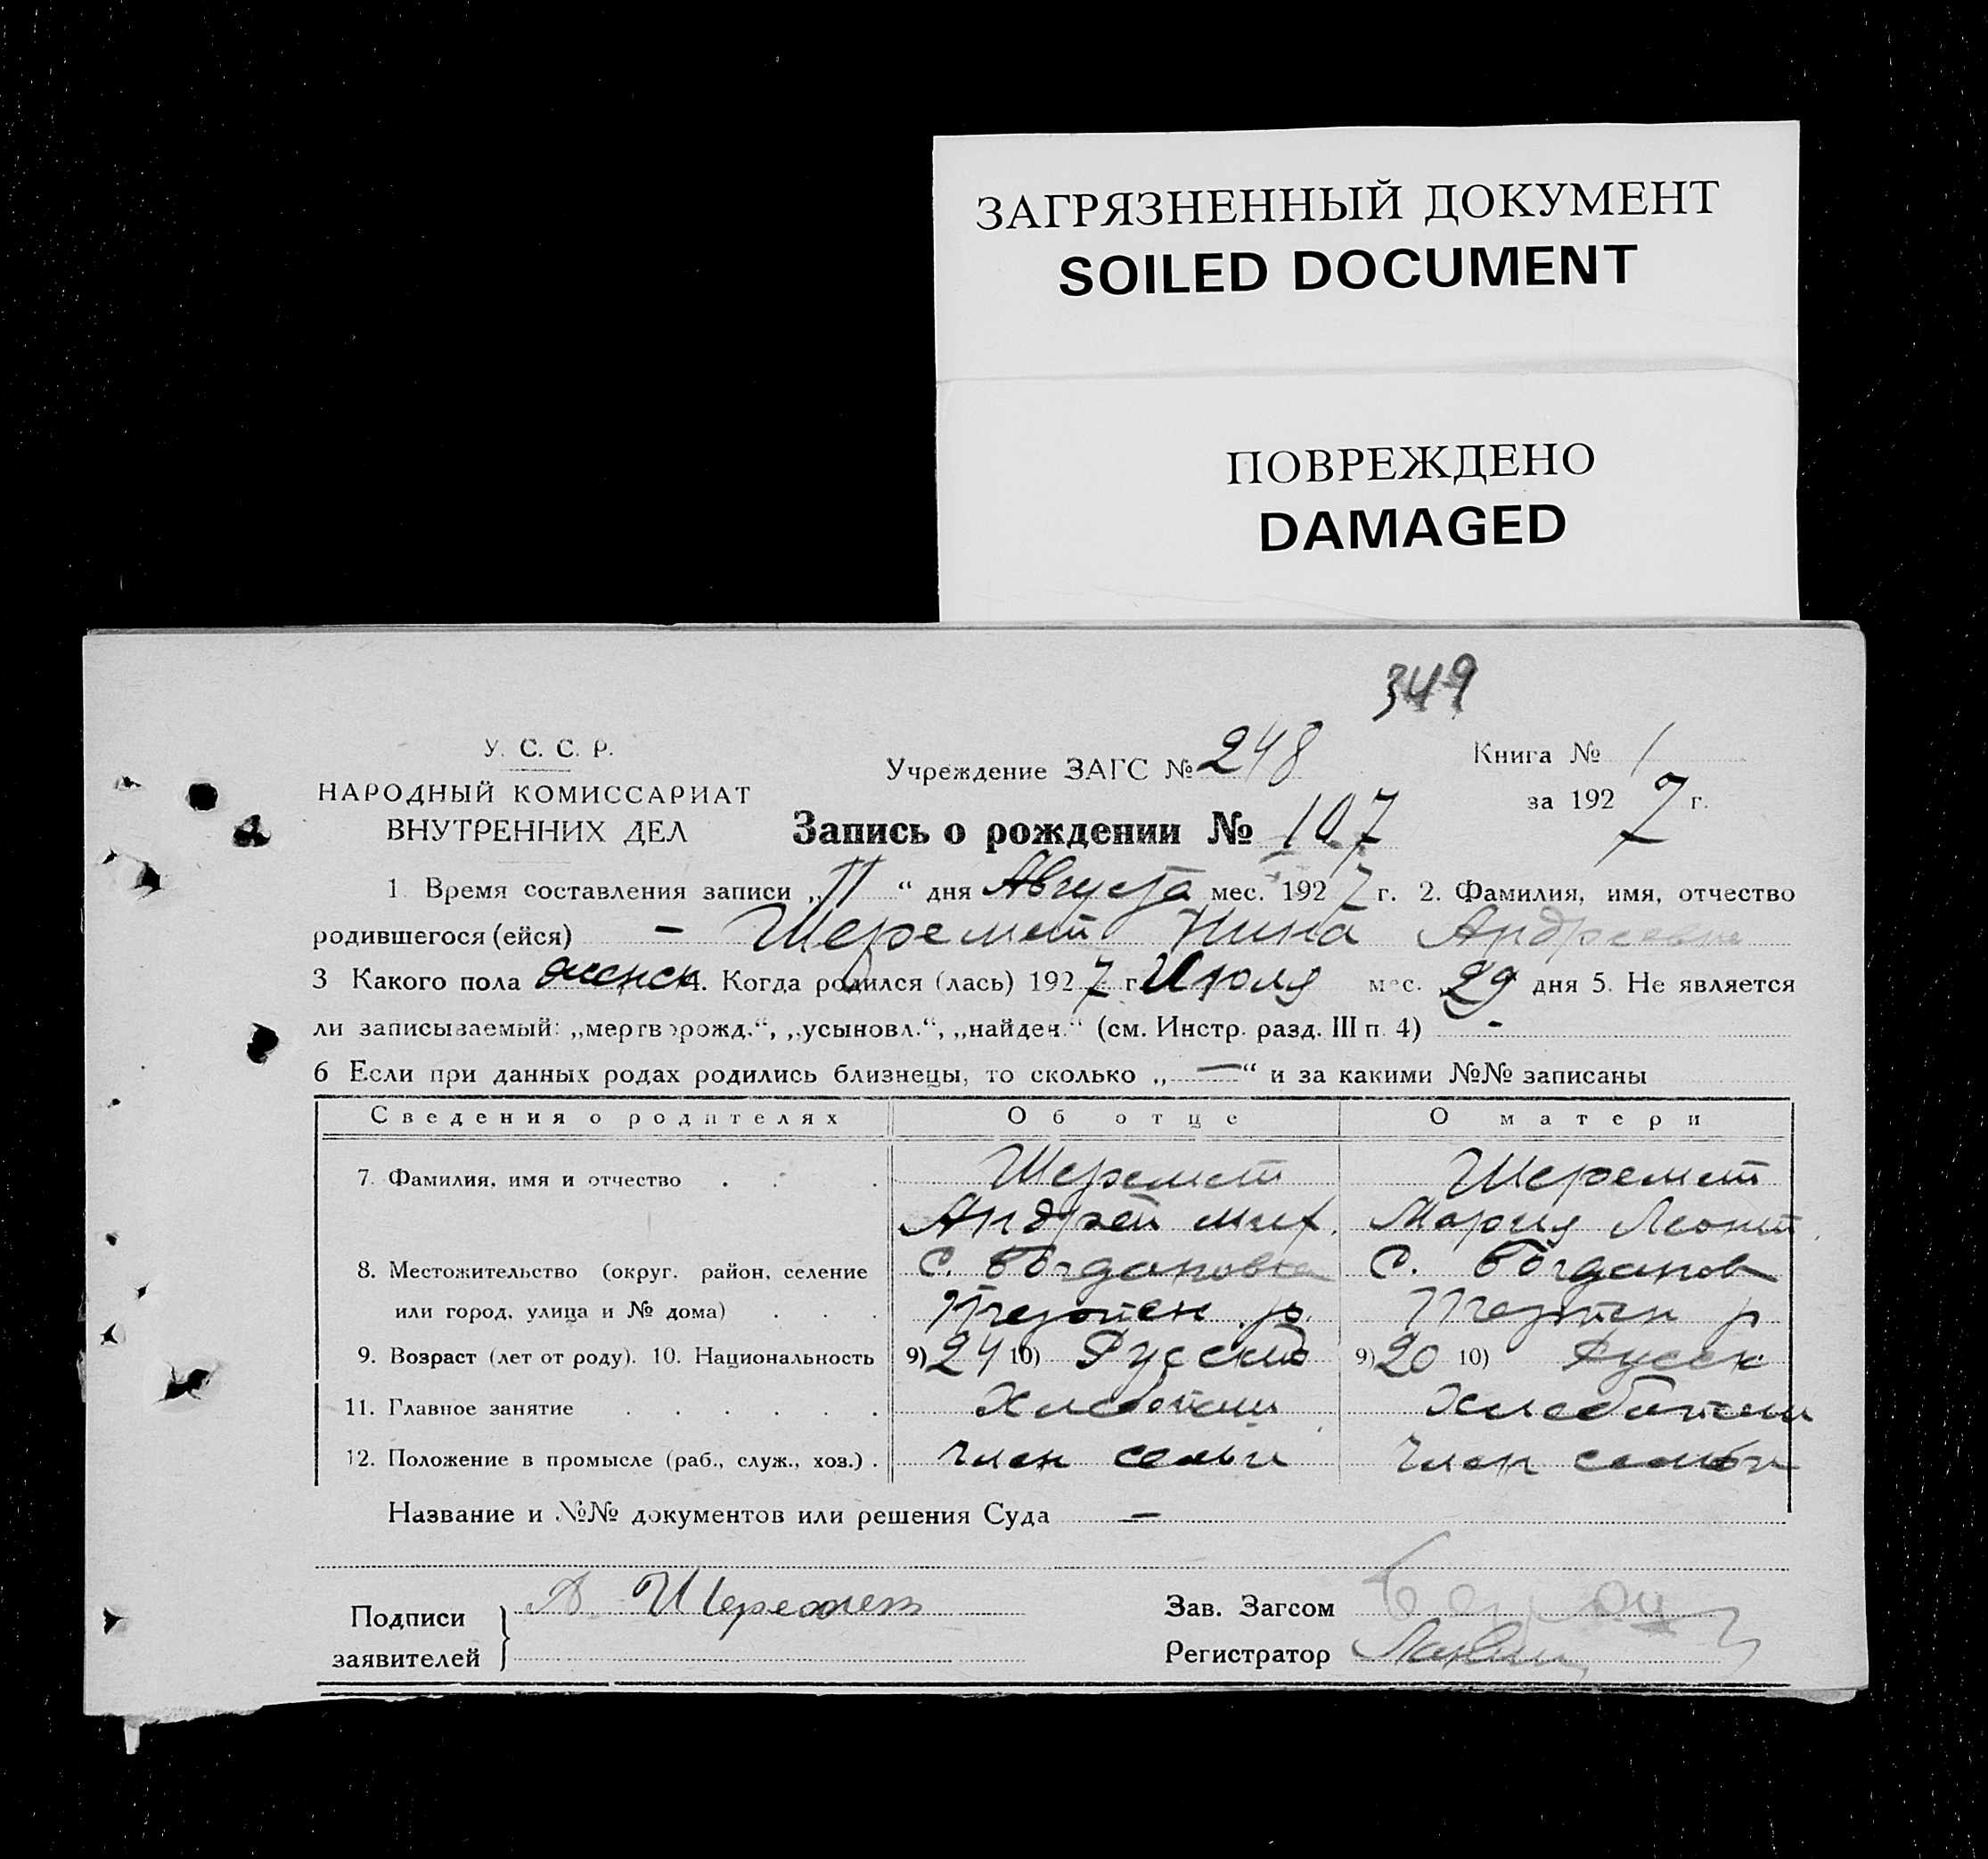 ЗАГРЯЗНЕННЫЙ ДОКУМЕНТ
SOILED DOCUMENT
ПОВРЕЖДЕНО
DAMAGED
349
У. С. С. Р.
НАРОДНЫЙ КОМИССАРИАТ
ВНУТРЕННИХ ДЕЛ
Учреждение ЗАГС № 248
Книга № 1
за 1927 г.
Запись о рождении № 107
1. Время составления записи „11“ дня Августа мес. 1927 г. 2. Фамилия, имя, отчество
родившегося (ейся) — Шеремет Нина Андреевна
3 Какого пола женск 4. Когда родился (лась) 1927 г. Июля мес. 29 дня 5. Не является
ли записываемый: „мертворожд.“, „усыновл.“, „найден.“ (см. Инстр. разд. III п. 4) -
6 Если при данных родах родились близнецы, то сколько „—“ и за какими №№ записаны
Сведения о родителях Об отце О матери
7. Фамилия, имя и отчество Шеремет Шеремет
Андрей мих. Мария Леонт
8. Местожительство (округ. район, селение С. Богдановка С. Богданов
или город, улица и № дома) р. р
9. Возраст (лет от роду). 10. Национальность 9) 24 10) Русский 9) 20 10) Русск
11. Главное занятие Хлебопаш Хлебопаш
12. Положение в промысле (раб., служ., хоз.) член семьи член семьи
Название и №№ документов или решения Суда —
Подписи
заявителей
А. Шеремет
Зав. Загсом
Регистратор